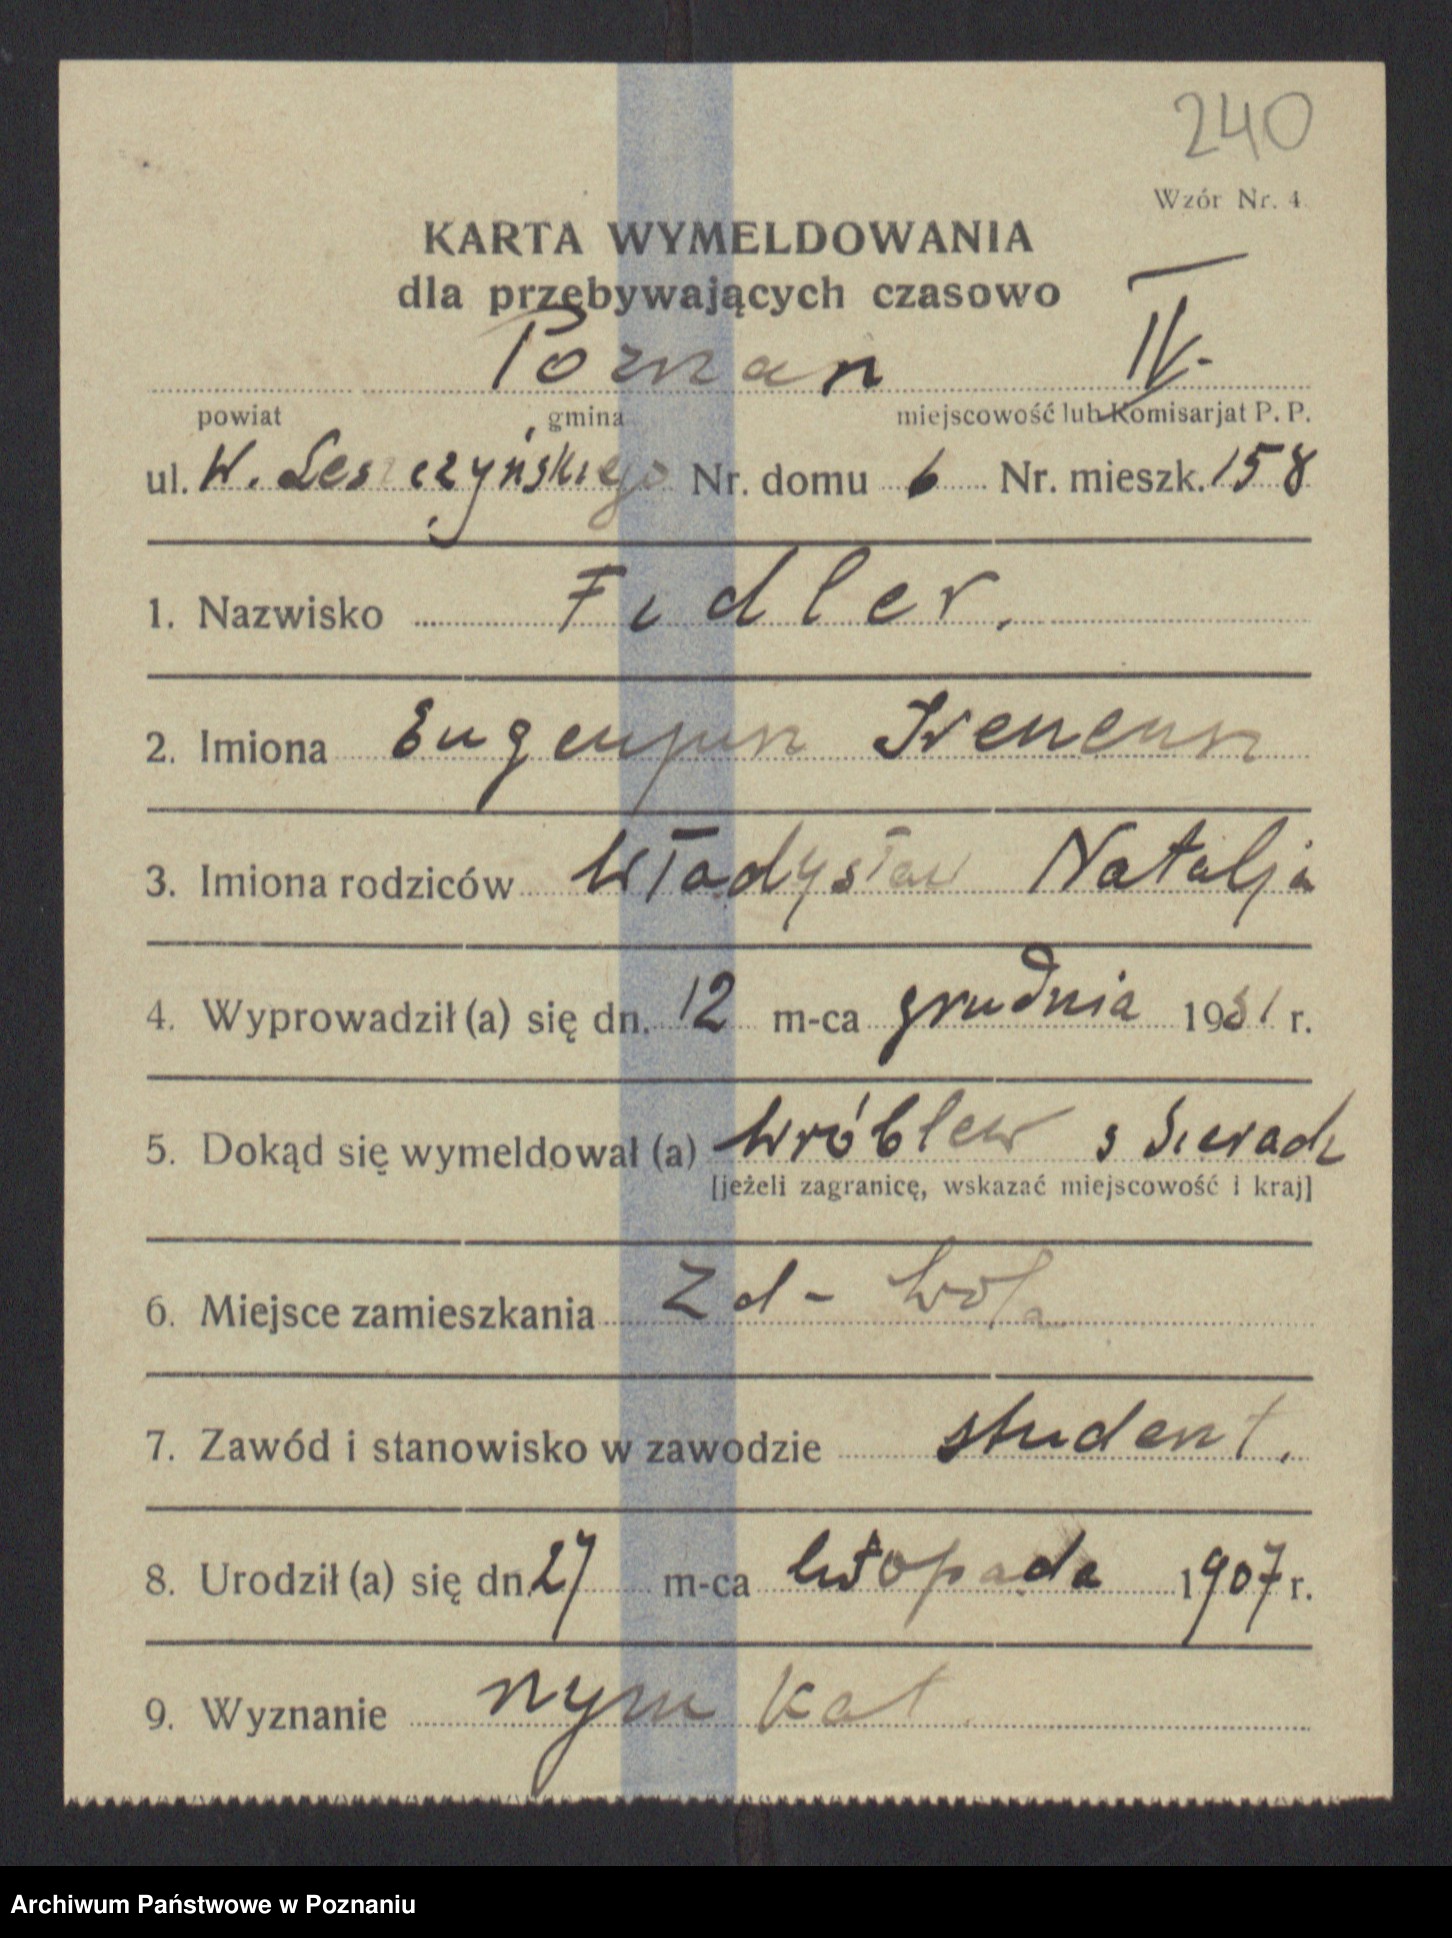 240
Wzór Nr. 4
KARTA WYMELDOWANIA
dla przebywających czasowo
Poznan IV.
powiat gmina miejscowość lub Komisarjat P. P.
ul. W. Leszczyńskiego Nr. domu 6 Nr. mieszk. 158
1. Nazwisko Fidler.
2. Imiona Eugenjusz Ireneusz
3. Imiona rodziców Władysław Natalja
4. Wyprowadził (a) się dn. 12 m-ca grudnia 1931 r.
5. Dokąd się wymeldował (a) Wróblew s Sieradz
[jeżeli zagranicę, wskazać miejscowość i kraj]
6. Miejsce zamieszkania Zd- Wola
7. Zawód i stanowisko w zawodzie student.
8. Urodził (a) się dn. 27 m-ca listopada 1907 r.
9. Wyznanie rzym kat
Archiwum Państwowe w Poznaniu